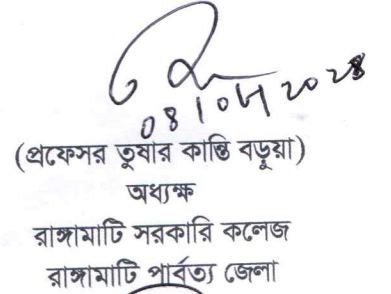 (প্রফেসর তুষার কান্তি বড়ুয়া)
অধ্যক্ষ
রাঙ্গামাটি সরকারি কলেজ
রাঙ্গামাটি পার্বত্য জেলা